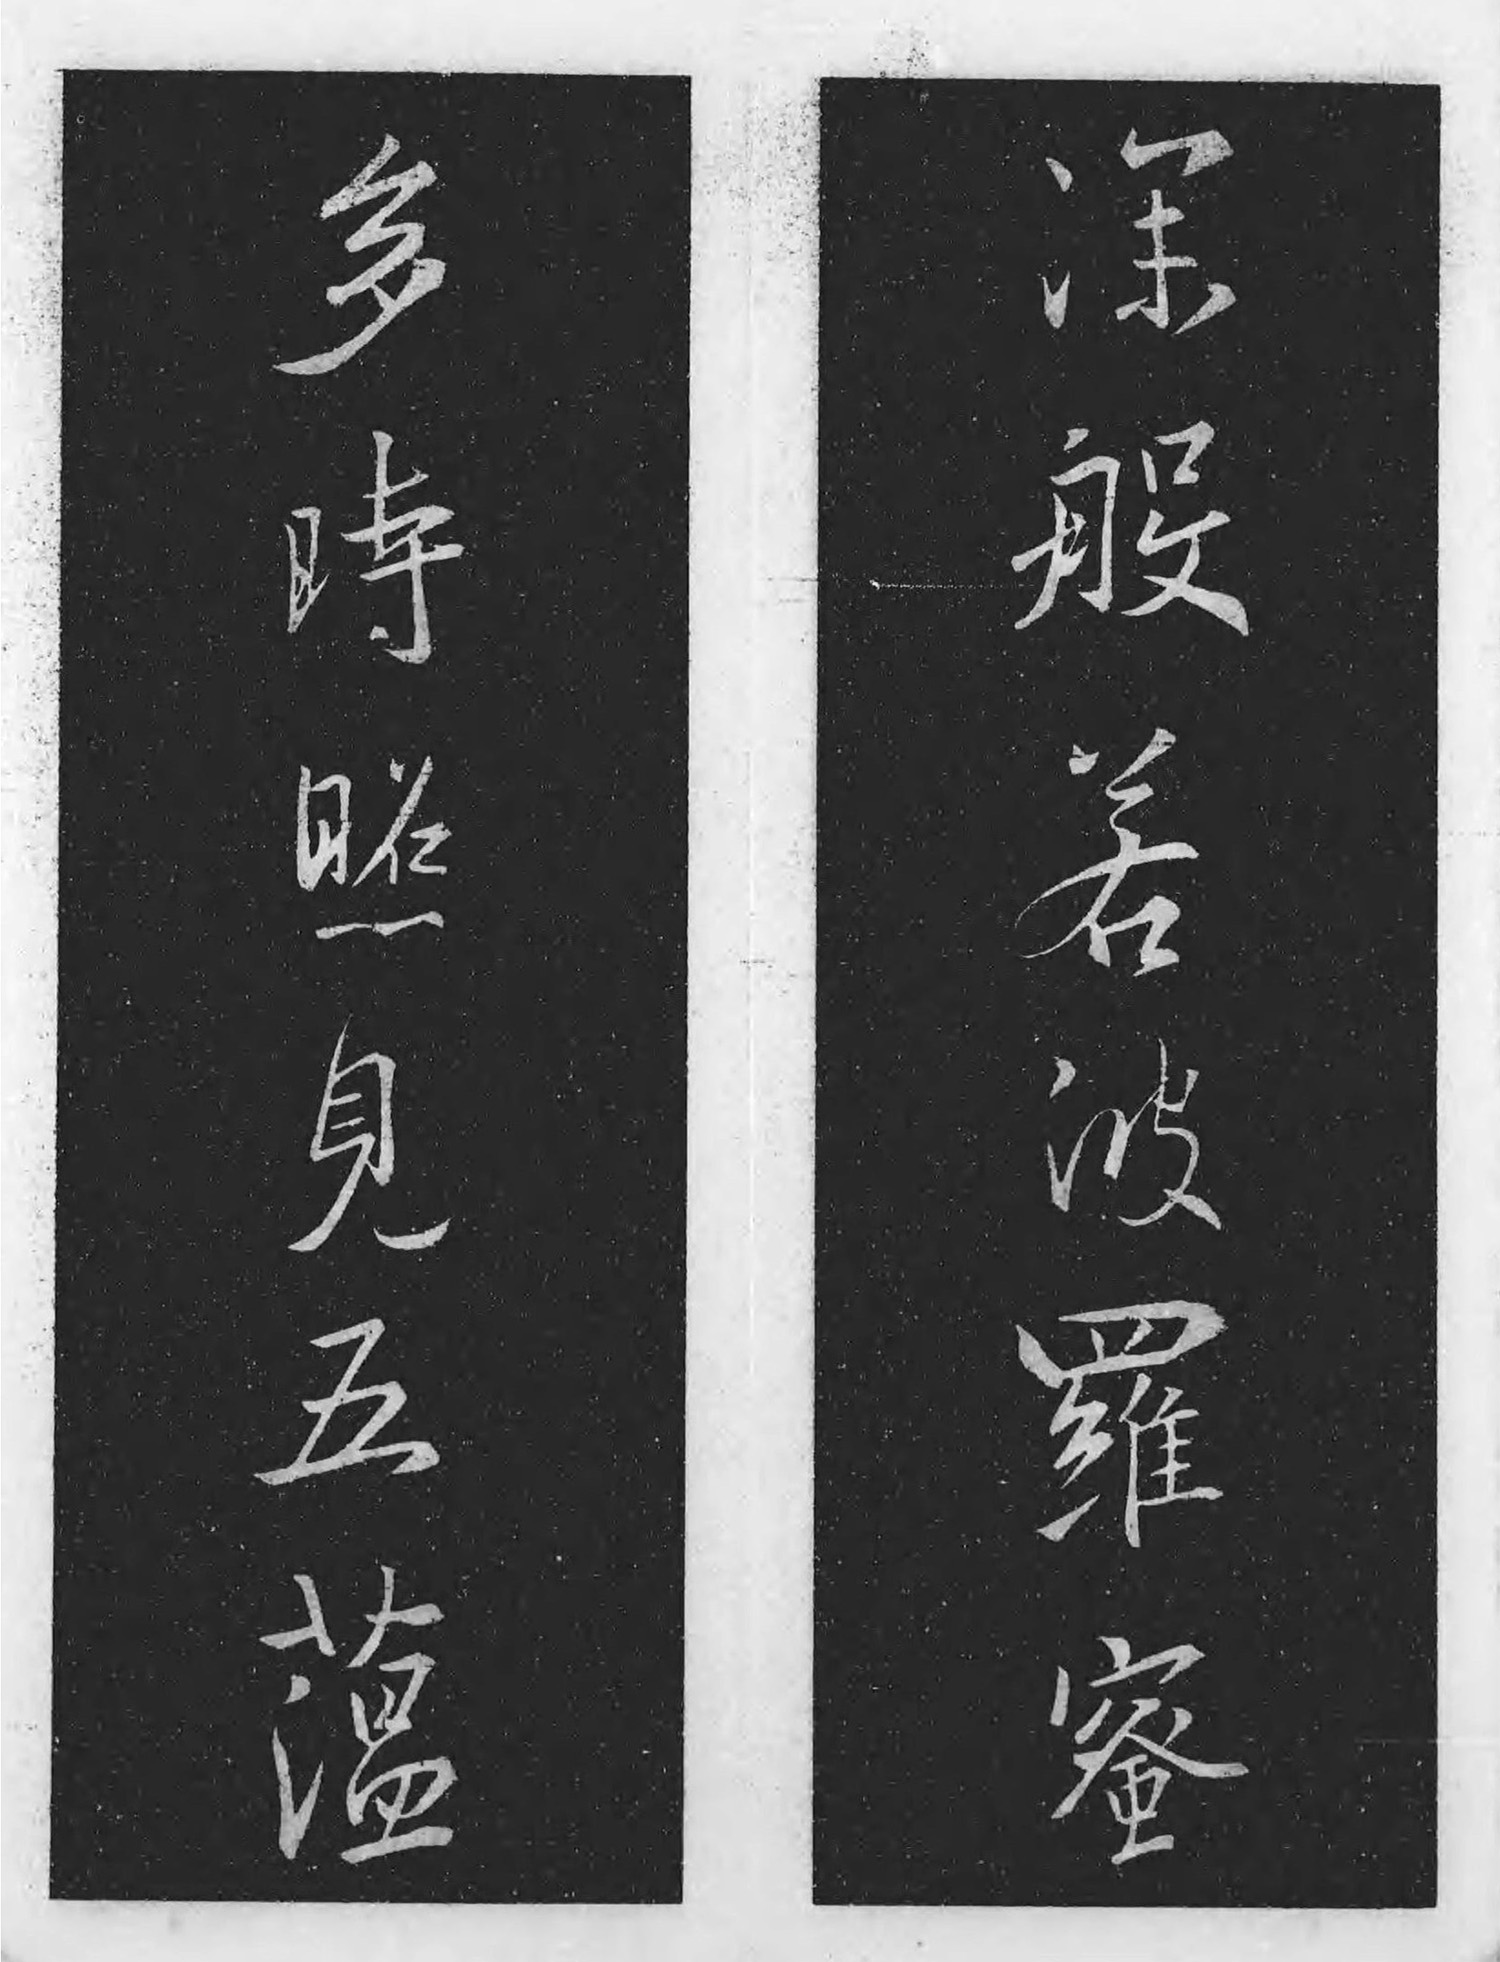 深般若波羅蜜
多時照見五蘊